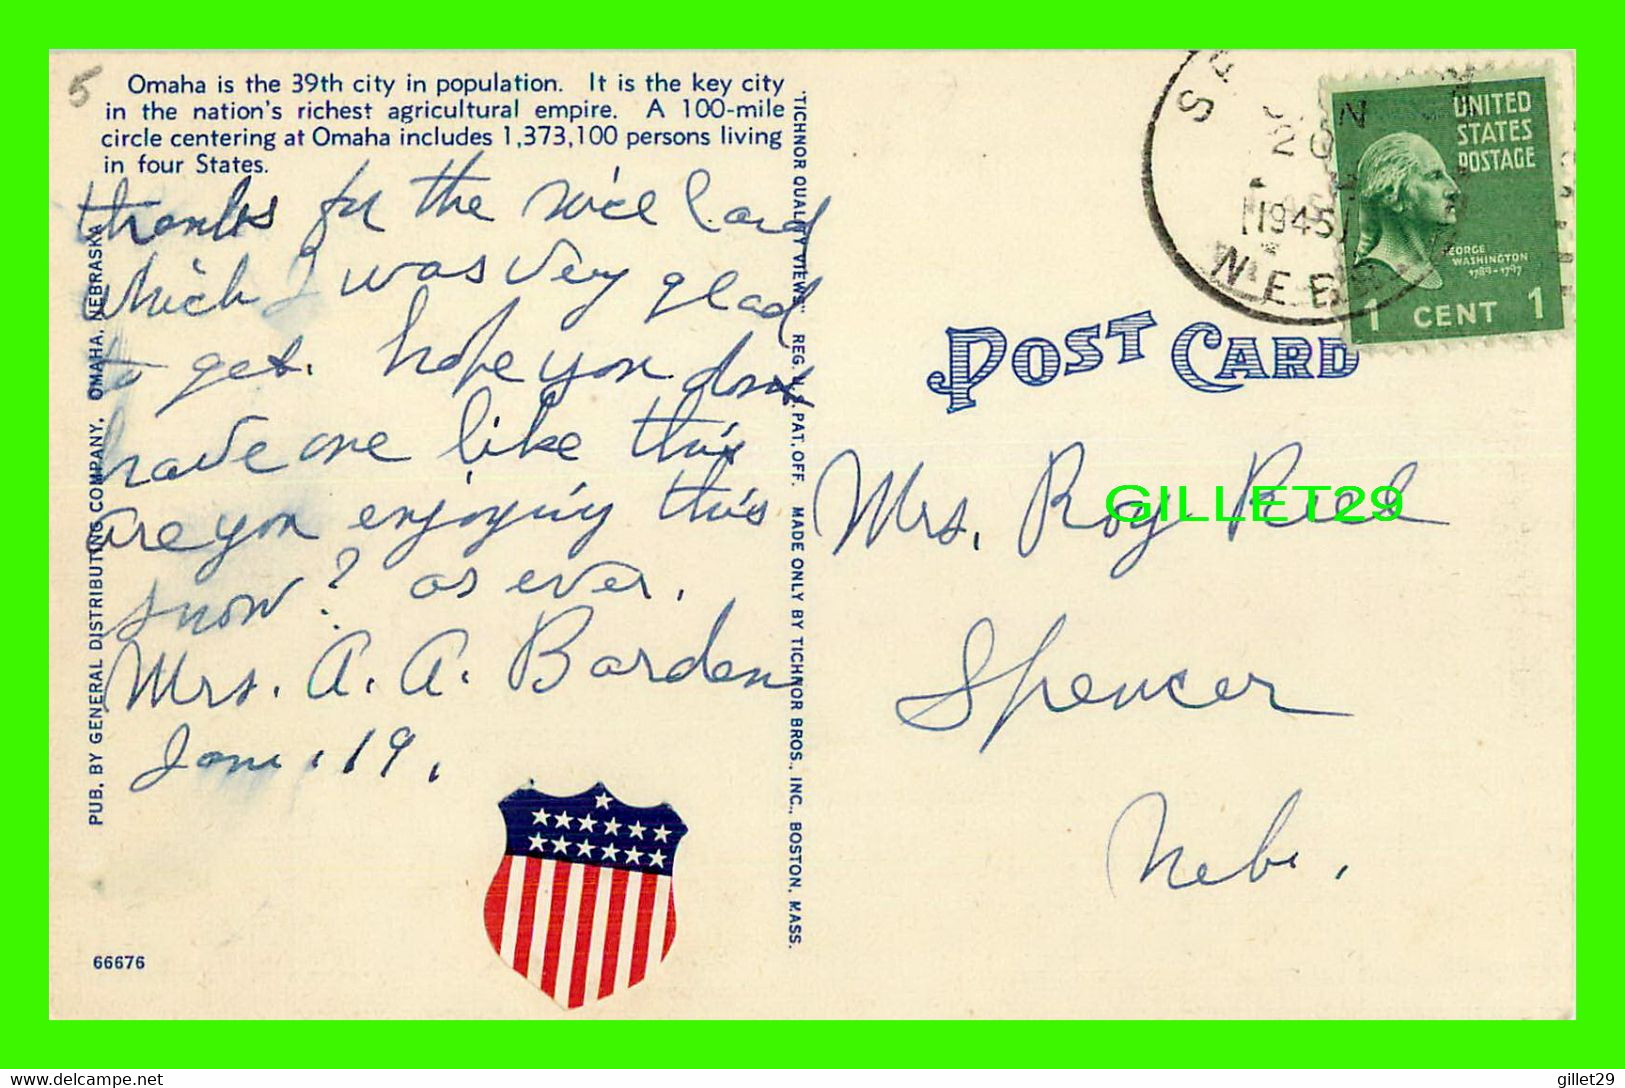 5
Omaha is the 39th city in population. It is the key city
in the nation's richest agricultural empire. A 100-mile
circle centering at Omaha includes 1,373,100 persons living
in four States.
thanks for the nice Card
which I was very glad
to get. hope you dont
have one like this
are you enjoying this
snow? as ever,
Mrs. A. A. Barden
Jan. 19.
PUB. BY GENERAL DISTRIBUTING COMPANY, OMAHA, NEBRASKA
"TICHNOR QUALITY VIEWS," REG. U. S. PAT. OFF. MADE ONLY BY TICHNOR BROS., INC., BOSTON, MASS.
66676
20
1945
NEBR
UNITED
STATES
POSTAGE
GEORGE
WASHINGTON
1789-1797
1 CENT 1
POST CARD
Mrs. Roy
GILLET29
Spencer
Nebr.
Delcampe.net
gillet29